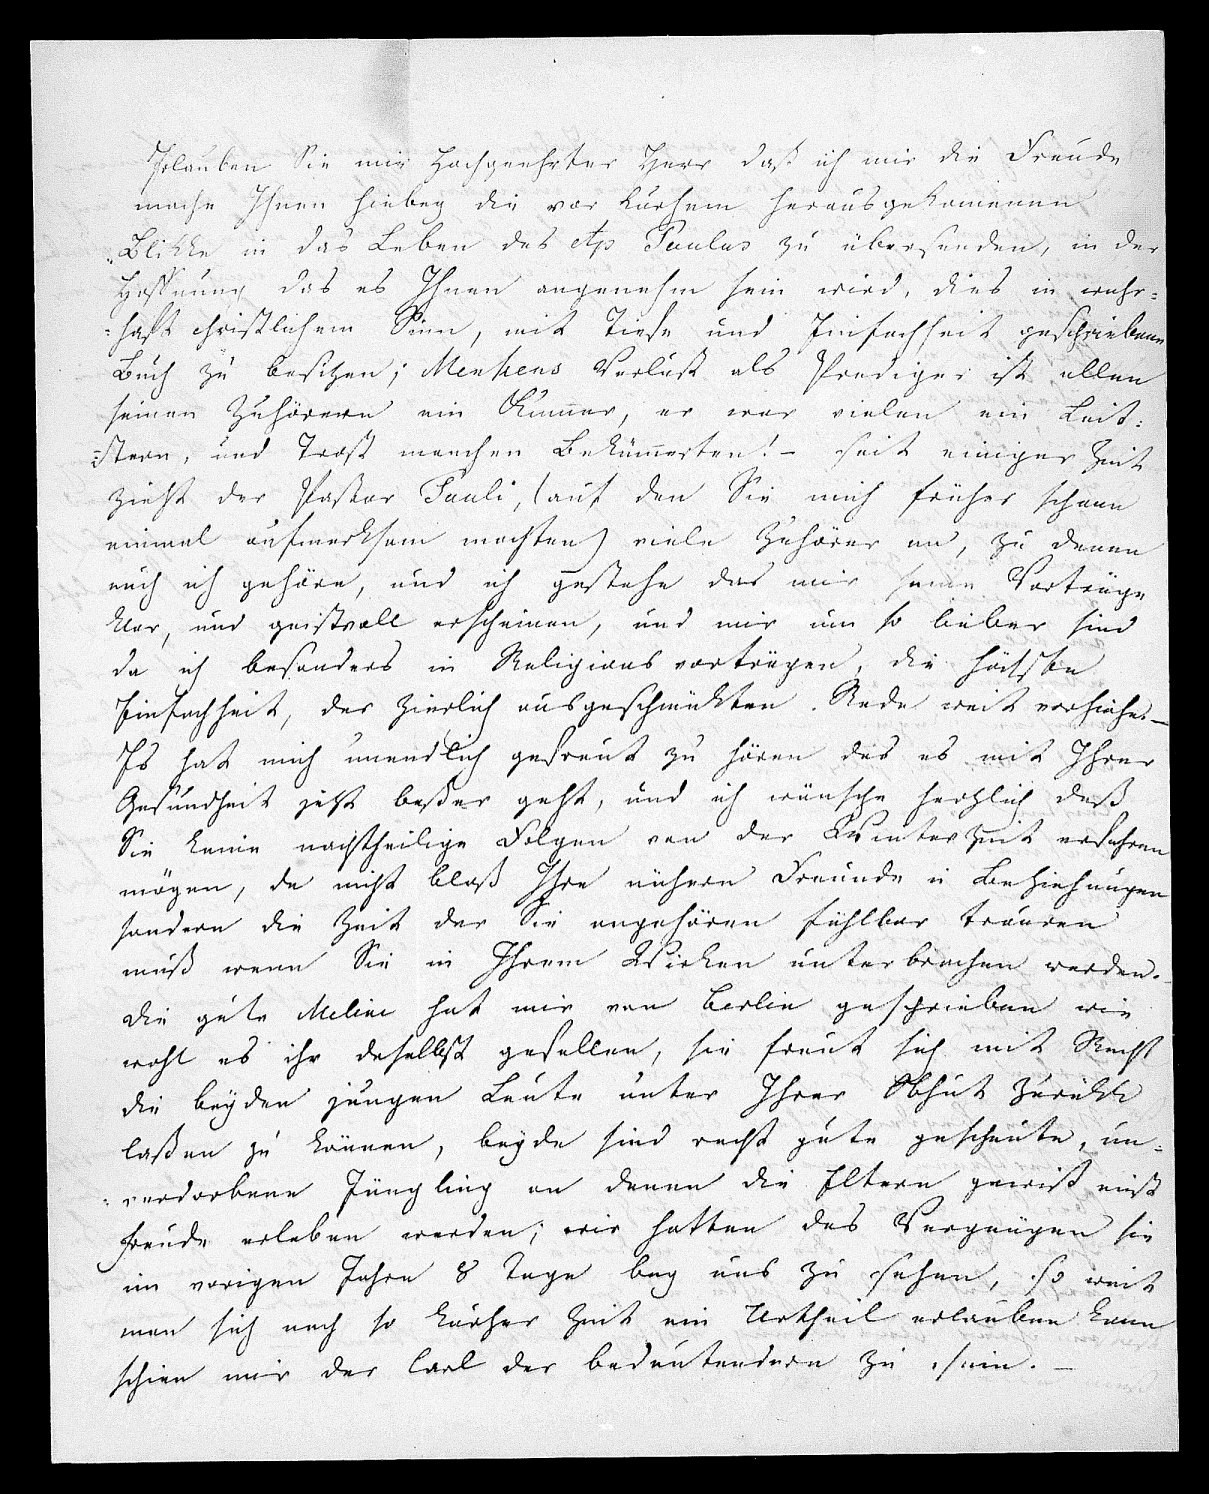 Erlauben Sie mir Hochgeehrter Herr daß ich mir die Freude
mache Ihnen hiebey die vor kurhem herausgekommenen
„Blikke in das Leben des Ap Paulus zu übersenden, in der
Hoffnung das es Ihnen angenehm sein wird, dies in wahr=
=haft christlichem Sinn, mit Tiefe und Einfachheit geschriebene
Buch zu besitzen; Menkens Verlust als Prediger ist allen
seinen Zuhörern ein Kummer, er war vielen ein Leit=
=stern, und Trost manchen Bekümmerten! – seit einiger Zeit
zieht der Pastor Pauli, (auf den Sie mich früher schonn
einmal aufmerksam machten) viele Zuhörer an, zu denen
auch ich gehöre, und ich gestehe das mir seine Vorträge
klar, und geistvoll erscheinen, und mir um so lieber sind
da ich besonders in Religionsvorträgen, die höchste
Einfachheit, der zierlich ausgeschmükten Rede weit vorziehe. –
Es hat mich unendlich gefreut zu hören das es mit Ihrer
Gesundheit jetzt beßer geht, und ich wünsche herzlich daß
Sie keine nachtheilige Folgen von der Winterzeit erfahren
mögen, da nicht bloß Ihre nähern Freunde u Beziehungen
sondern die Zeit der Sie angehören fühlbar trauren
muß wenn Sie in Ihrem Wirken unterbrochen werden. –
Die gute Meline hat mir von Berlin geschrieben wie
wohl es ihr deselbst gefallen, sie freut sich mit Recht
die beyden jungen Leute unter Ihrer Obhut zurükk
laßen zu können, beyde sind recht gute gescheute, un=
=verdorbene Jüngling an denen die Eltern gewiß einst
Freude erleben werden; wir hatten das Vergnügen sie
im vorigen Jahre 8 Tage bey uns zu sehen, so weit
man sich nach so kurher Zeit ein Urtheil erlauben kann
schien mir der Carl der bedeutendere zu sein. –